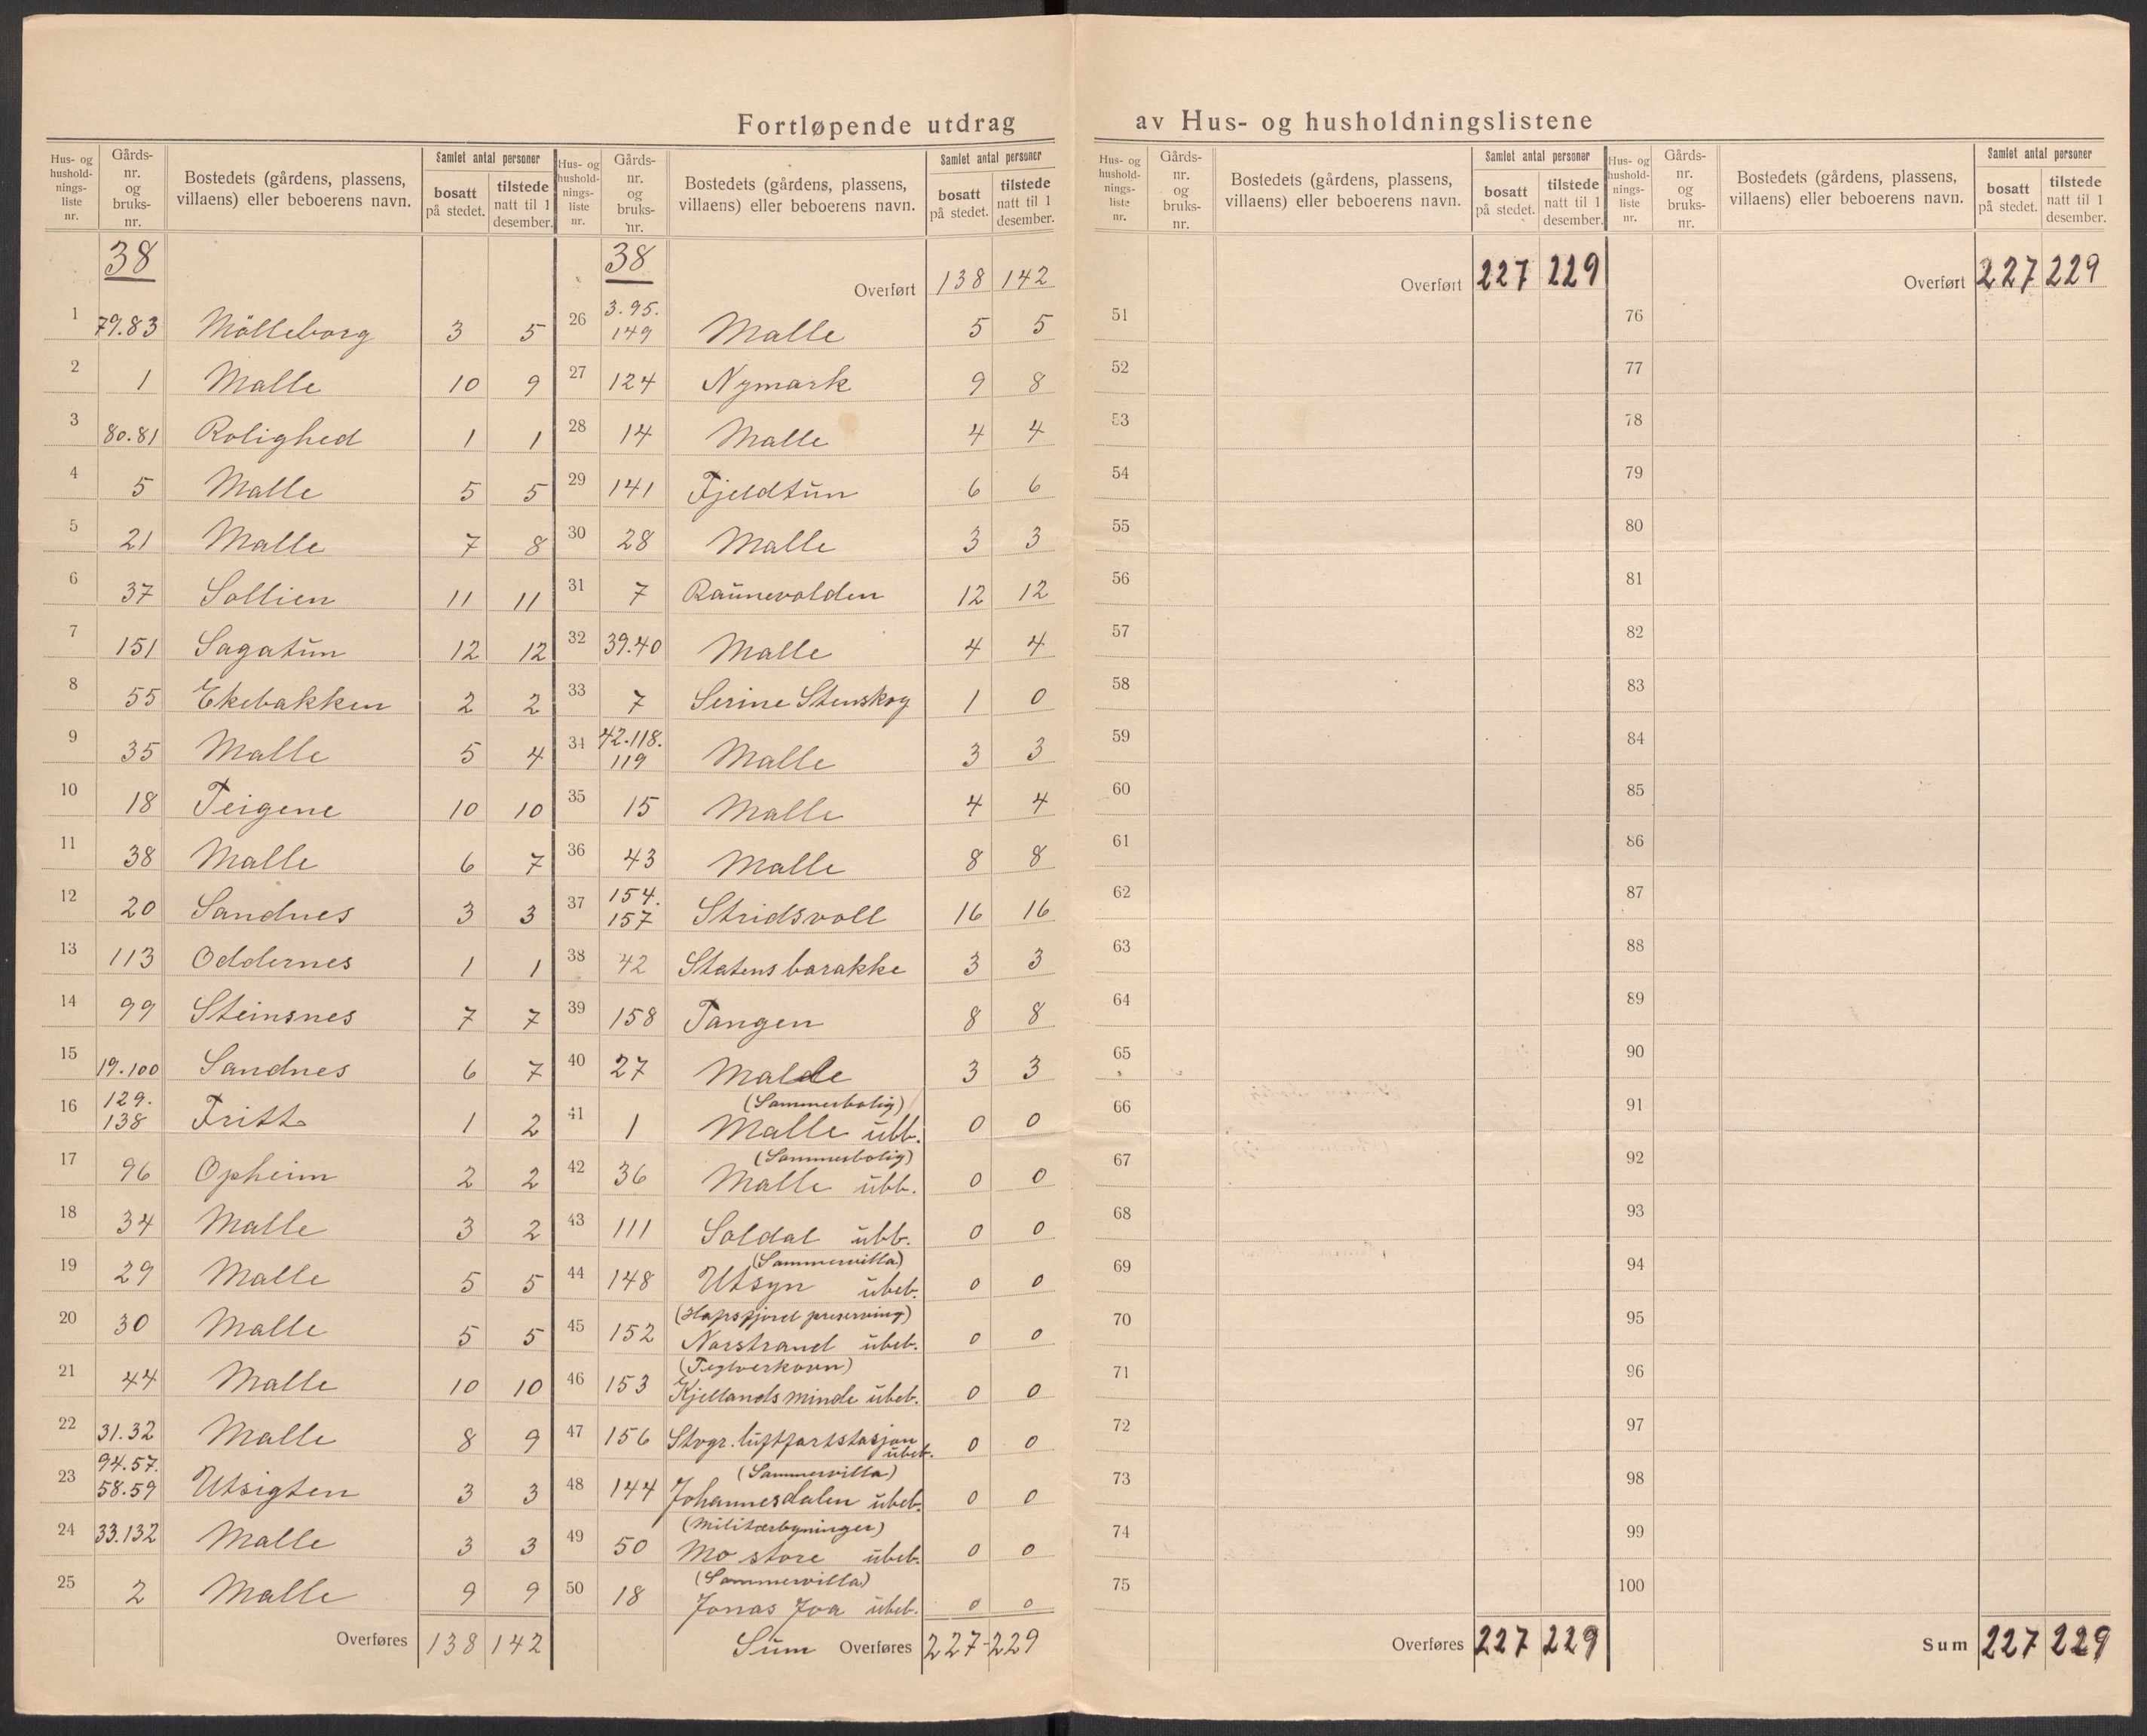 Fortløpende utdrag av Hus- og husholdningslistene
Hus- og hushold-nings-liste nr. Gårds-nr. og bruks-nr. Bostedets (gårdens, plassens, villaens) eller beboerens navn. Samlet antal personer bosatt på stedet. tilstede natt til 1 desember.
38
1 79.83 Mölleborg 3 5
2 1 Malle 10 9
3 80.81 Rolighed 1 1
4 5 Malle 5 5
5 21 Malle 7 8
6 37 Sollien 11 11
7 151 Sagatun 12 12
8 55 Ekebakken 2 2
9 35 Malle 5 4
10 18 Teigene 10 10
11 38 Malle 6 7
12 20 Sandnes 3 3
13 113 Oddernes 1 1
14 99 Steinsnes 7 7
15 19.100 Sandnes 6 7
16 129. 138 Fritt 1 2
17 96 Opheim 2 2
18 34 Malle 3 2
19 29 Malle 5 5
20 30 Malle 5 5
21 44 Malle 10 10
22 31.32 Malle 8 9
23 94.57. 58.59 Utsigten 3 3
24 33.132 Malle 3 3
25 2 Malle 9 9
Overføres 138 142
Hus- og hushold-nings-liste nr. Gårds-nr. og bruks-nr. Bostedets (gårdens, plassens, villaens) eller beboerens navn. Samlet antal personer bosatt på stedet. tilstede natt til 1 desember.
38
Overført 138 142
26 3.95. 149 Malle 5 5
27 124 Nymark 9 8
28 14 Malle 4 4
29 141 Fjeldtun 6 6
30 28 Malle 3 3
31 7 Raunevolden 12 12
32 39.40 Malle 4 4
33 7 Serine Stenskog 1 0
34 42.118. 119 Malle 3 3
35 15 Malle 4 4
36 43 Malle 8 8
37 154. 157 Stridsvoll 16 16
38 42 Statens barakke 3 3
39 158 Tangen 8 8
40 27 Malle 3 3
(Sommerbolig)
41 1 Malle ubb. 0 0
(Sommerbolig)
42 36 Malle ubb. 0 0
43 111 Soldal ubb. 0 0
(Sommervilla)
44 148 Utsyn ubeb. 0 0
(Hafsfjord preserving)
45 152 Norstrand ubeb. 0 0
(Teglverkovn)
46 153 Kjellands minde ubeb. 0 0
47 156 Stvgr. luftfartstasjon ubeb. 0 0
(Sommervilla)
48 144 Johannesdalen ubeb. 0 0
(Militærbyninger)
49 50 Mo store ubeb. 0 0
(Sommervilla)
50 18 Jonas Joa ubeb. 0 0
Sum Overføres 227-229
Hus- og hushold-nings-liste nr. Gårds-nr. og bruks-nr. Bostedets (gårdens, plassens, villaens) eller beboerens navn. Samlet antal personer bosatt på stedet. tilstede natt til 1 desember.
Overført 227 229
51
52
53
54
55
56
57
58
59
60
61
62
63
64
65
66
67
68
69
70
71
72
73
74
75
Overføres 227 229
Hus- og hushold-nings-liste nr. Gårds-nr. og bruks-nr. Bostedets (gårdens, plassens, villaens) eller beboerens navn. Samlet antal personer bosatt på stedet. tilstede natt til 1 desember.
Overført 227 229
76
77
78
79
80
81
82
83
84
85
86
87
88
89
90
91
92
93
94
95
96
97
98
99
100
Sum 227 229